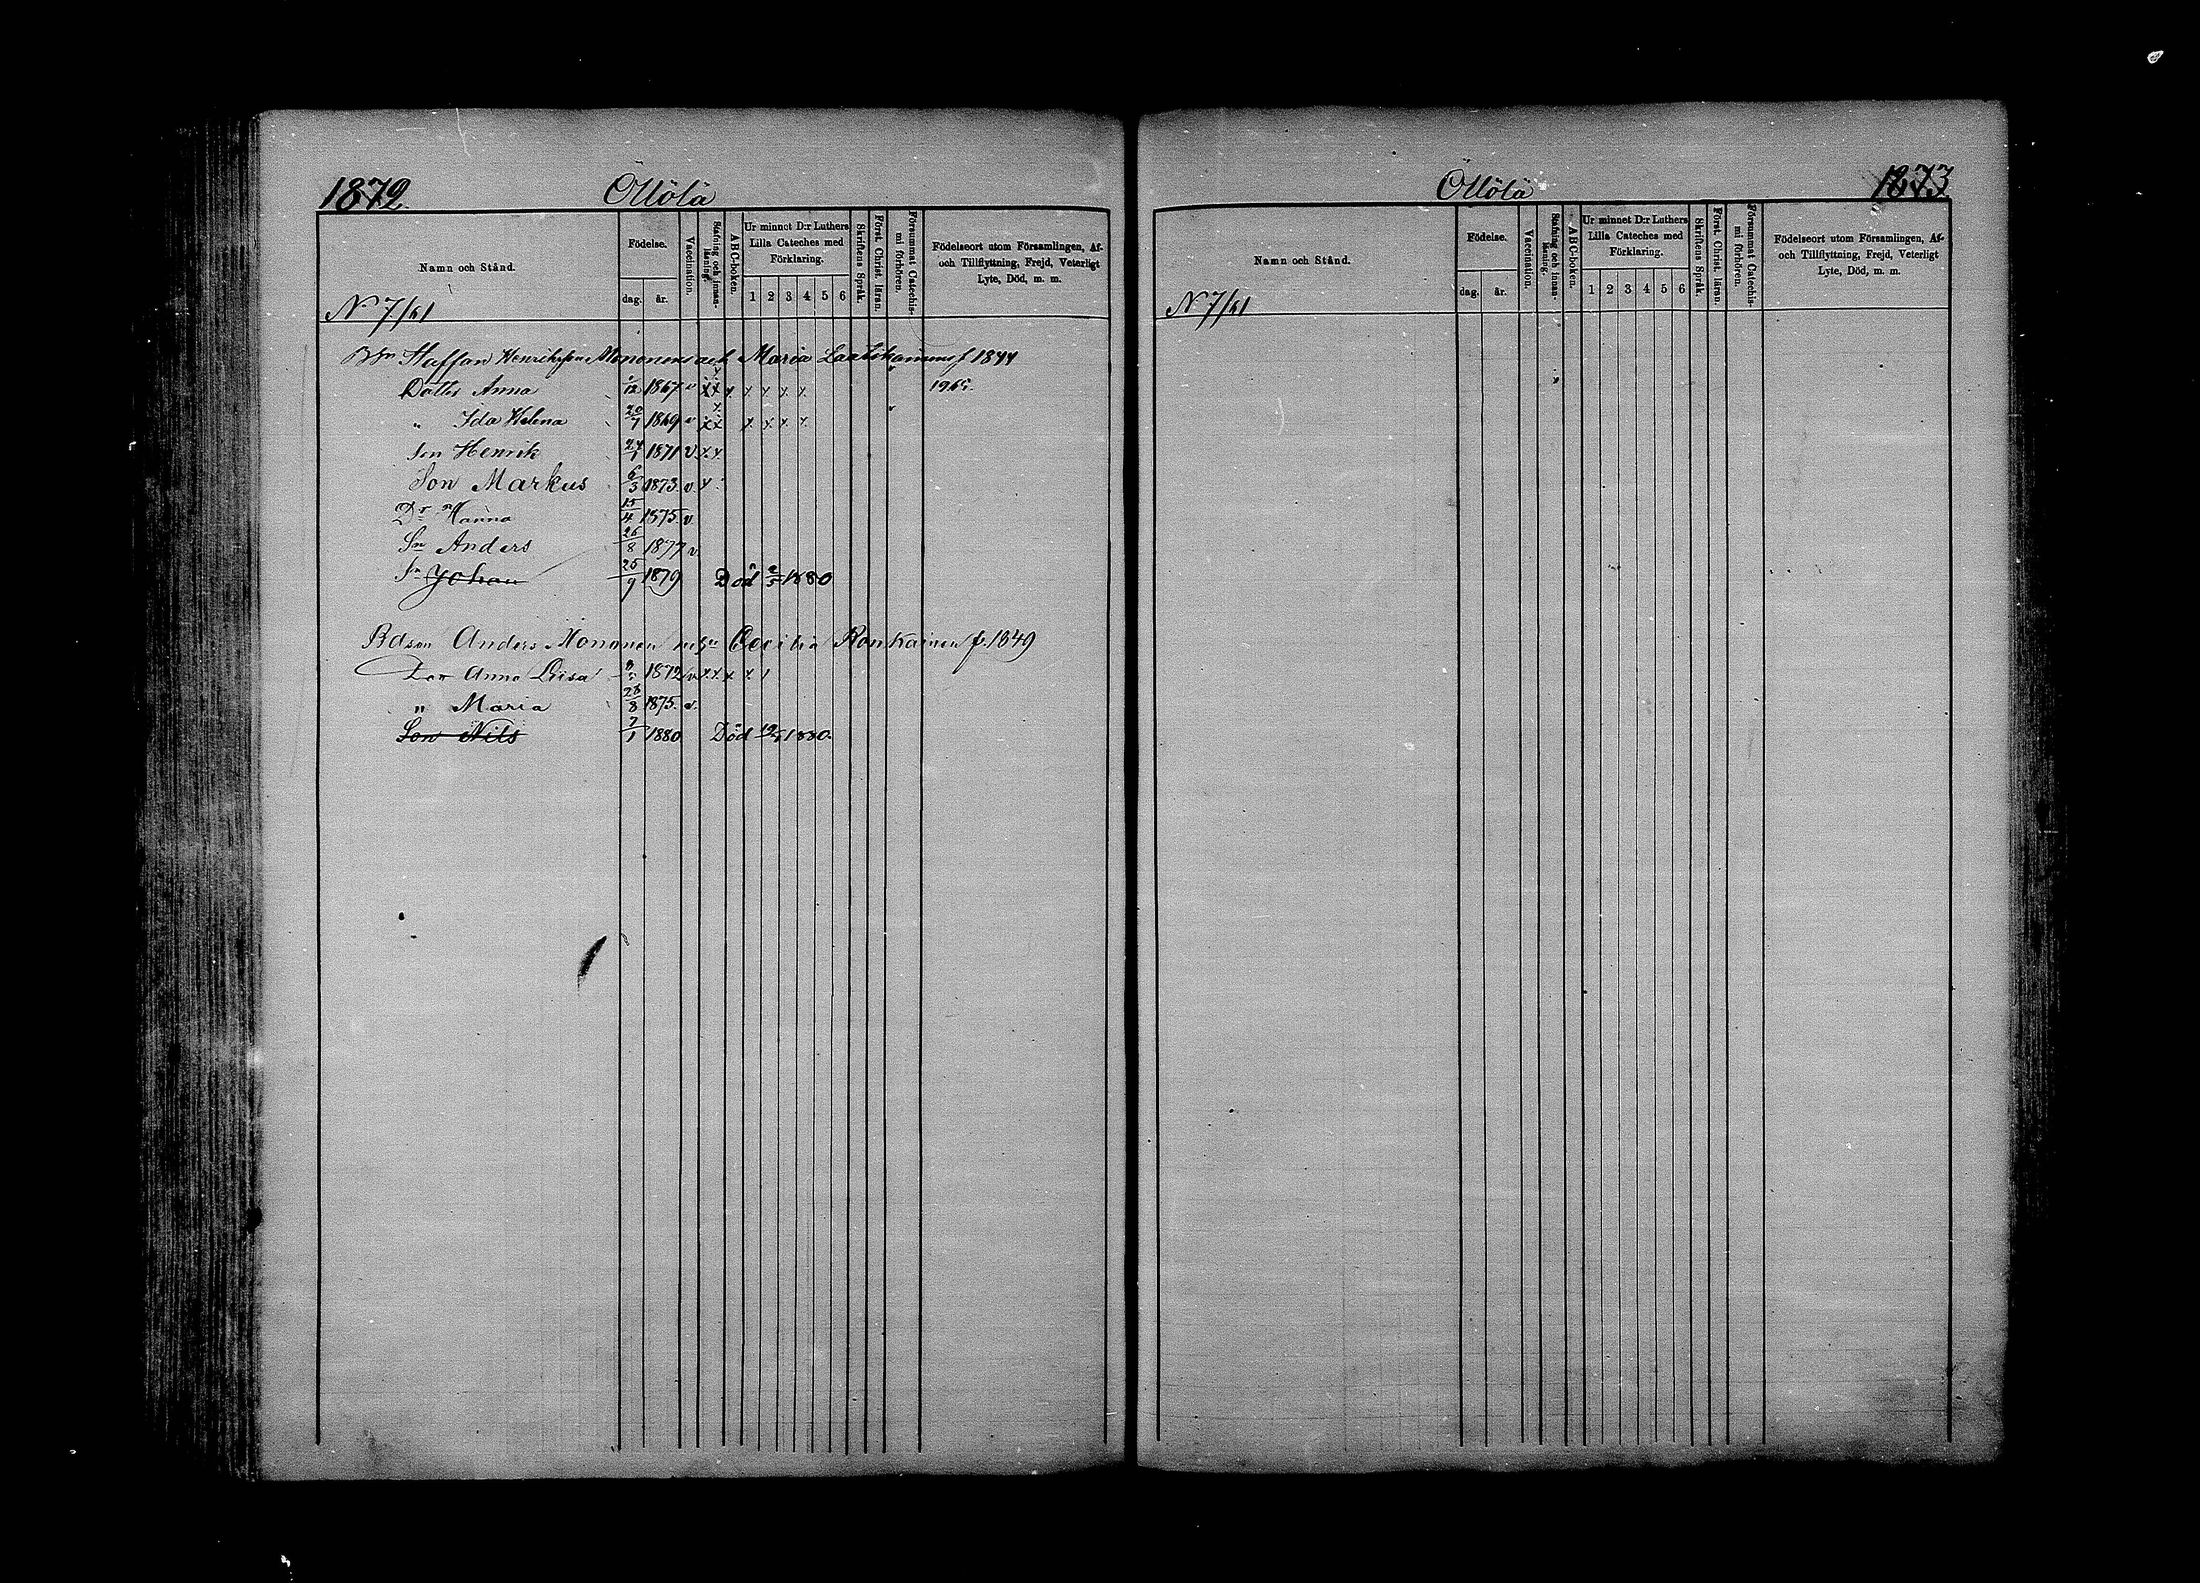 1872. Ollölä
Namn och Stånd. Födelse. dag. år. Vaccination. Stafning och innanläsning. ABC-boken. Ur minnet D:r Luthers Lilla Cateches med Förklaring. 1 2 3 4 5 6 Skriftens Språk. Först. Christ. läran. Försummat Catechismi förhören. Födelseort utom Församlingen, Af- och Tillflyttning, Frejd, Veterligt Lyte, Död, m. m.
N 7/61
Staffan Henriksson Mononens och Maria Laatikainens f. 1844
Dotter Anna 1867 v x x x x x x x 1965.
" Ida Helena 20/7 1869 v x x x x x x
Son Henrik 24/1 1871 v x x
Son Markus 6/3 1873. v. x
Dr Hanna 15/4 1875. v
Sn Anders 26/8 1877 v.
Sn Johan 25/9 1879 Död 1880
Bdson Anders Mononen Cecilia Ronkainen f. 1849
Dtr Anna Liisa 1872 v x x x x /
" Maria 28/8 1875. v.
Son Nils 7/1 1880 Död 1880.
Öllölä 1873.
Namn och Stånd. Födelse. dag. år. Vaccination. Stafning och innanläsning. ABC-boken. Ur minnet D:r Luthers Lilla Cateches med Förklaring. 1 2 3 4 5 6 Skriftens Språk. Först. Christ. läran. Försummat Catechismi förhören. Födelseort utom Församlingen, Af- och Tillflyttning, Frejd, Veterligt Lyte, Död, m. m.
N 7/61